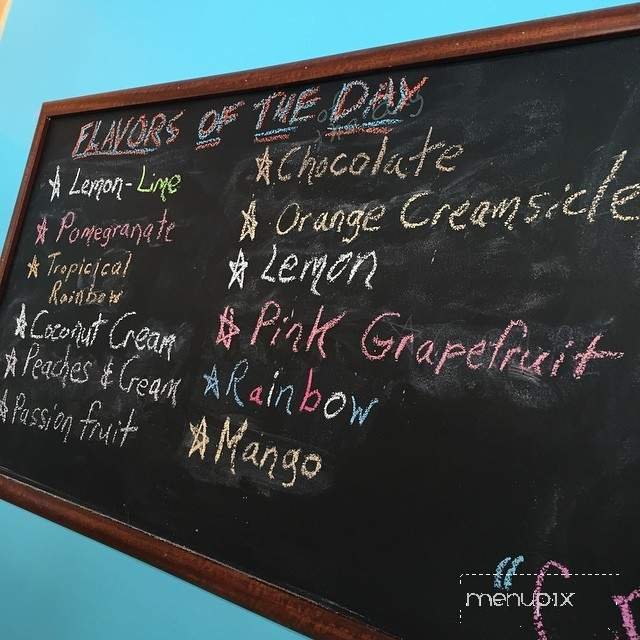 FLAVORS OF THE DAY
☆ Lemon-Lime
☆ Pomegranate
☆ Tropicical
Rainbow
☆ Coconut Cream
☆ Peaches & Cream
☆ Passion fruit
☆ Chocolate
☆ Orange Creamsicle
☆ Lemon
☆ Pink Grapefruit
☆ Rainbow
☆ Mango
menupix